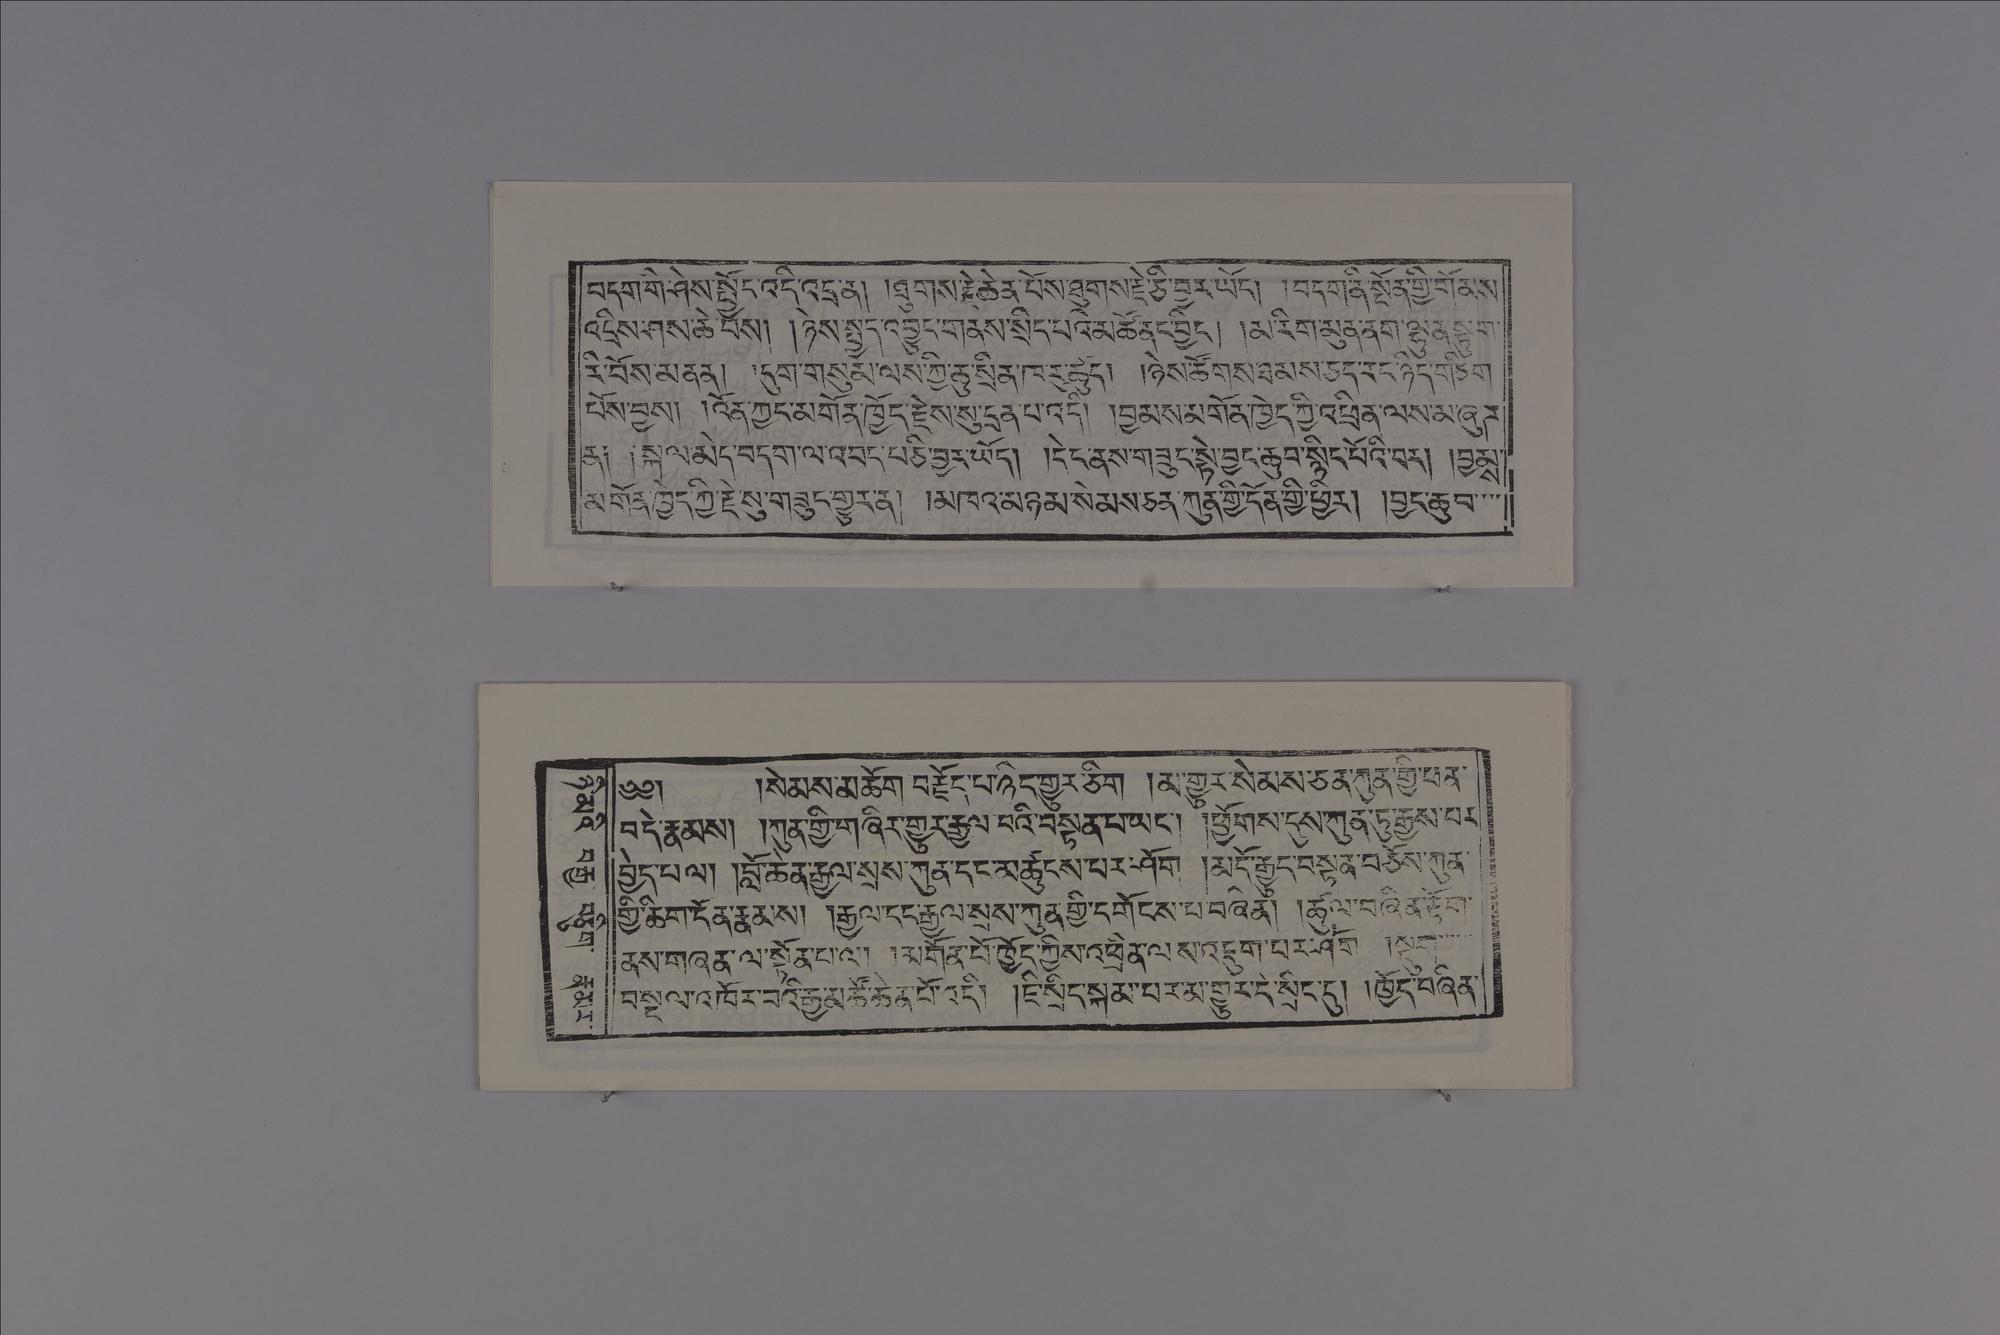 བདག་གི་ཤེས་སྤྱོད་འདི་འདྲ་ན། །ཐུགས་རྗེ་ཆེན་པོས་ཐུགས་རྗེ་ཅི་བྱར་ཡོད། །བདག་ནི་སྔོན་གྱི་གོམས་
འདྲིས་ཤས་ཆེ་བས། །ཉེས་སྤྱད་འབྱུང་གནས་སྲིད་པའི་མཚོ་ནང་བྱིང་། །མ་རིག་མུན་ནག་ལྷུན་སྟུག་
རི་བོས་མནན། །དུག་གསུམ་ལས་ཀྱི་ཆུ་སྲིན་ཁ་རུ་ཚུད། །ཉེས་ཚོགས་ཐམས་ཅད་རང་ཉིད་གཅིག
པོས་བྱས། །འོན་ཀྱང་མགོན་ཁྱོད་རྗེས་སུ་དྲན་པ་འདི། །བྱམས་མགོན་ཁྱེད་ཀྱི་འཕྲིན་ལས་མ་ཞུ་
ན། །སྐལ་མེད་བདག་ལ་འབད་པ་ཅི་བྱར་ཡོད། །དེ་ང་ནས་གཟུང་སྟེ་བྱང་ཆུབ་སྙིང་པོའི་བར། །བྱམས་
མགོན་ཁྱེད་ཀྱི་རྗེ་སུ་གཟུང་གྱུར་ན། །མཁའ་མཉམ་སེམས་ཅན་ཀུན་གྱི་དོན་གྱི་ཕྱིར། །བྱང་ཆུབ
༄༅། །སེམས་མཆོག་བརྗོད་པ་ཉིད་གྱུར་ཅིག །མ་གྱུར་སེམས་ཅན་ཀུན་གྱི་ཕན་
བདེ་རྣམས། །ཀུན་གྱི་གཞིར་གྱུར་རྒྱལ་བའི་བསྟན་པ་ཡང་། །ཕྱོགས་དུས་ཀུན་ཏུ་རྒྱས་པར
བྱེད་པ་ལ། །བློ་ཆེན་རྒྱལ་སྲས་ཀུན་དང་མཚུངས་པར་ཤོག །མདོ་རྒྱུད་བསྟན་བཅོས་ཀུན་
གྱི་ཚིག་དོན་རྣམས། །རྒྱལ་དང་རྒྱལ་སྲས་ཀུན་གྱི་དགོངས་པ་བཞིན། །ཚུལ་བཞིན་རྟོག་
ནས་གཞན་ལ་སྟོན་པ་ལ། །མགོན་པོ་ཁྱོད་ཀྱིས་འཕྲིན་ལས་འཇུག་པར་ཤོག །སྡུག
བསྔལ་འཁོར་བའི་རྒྱ་མཚོ་ཆེན་པོ་འདི། །ཇི་སྲིད་སྐམ་པར་མ་གྱུར་དེ་སྲིད་དུ། །ཁྱོད་བཞིན་